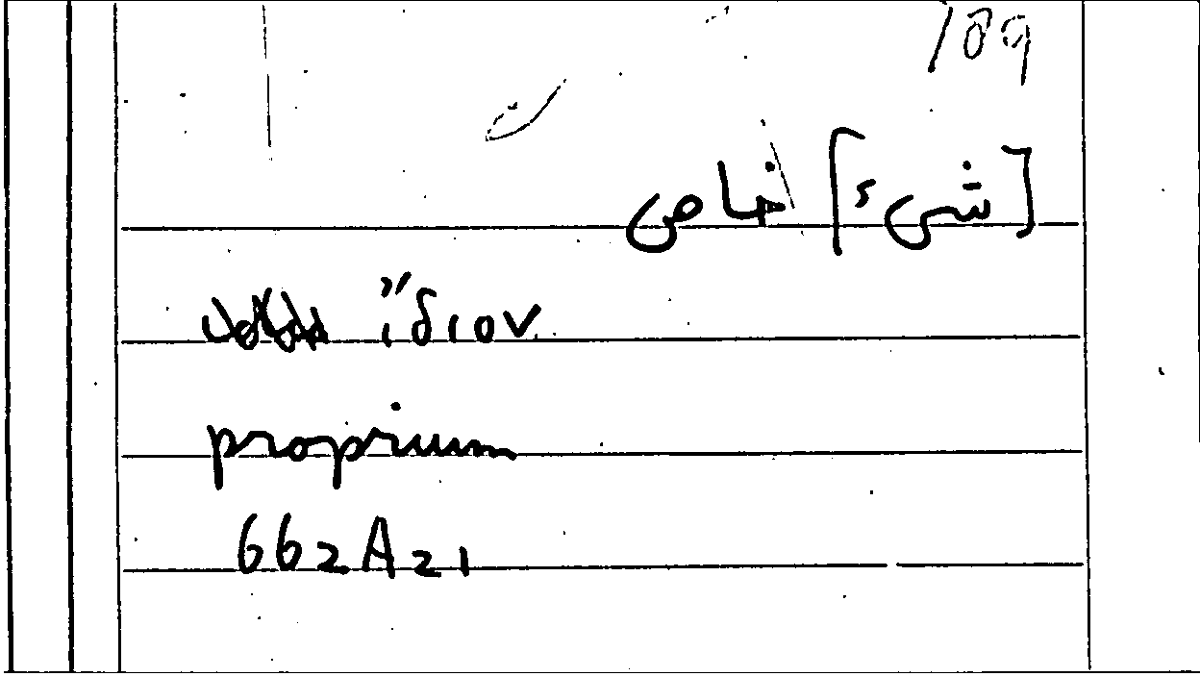 189
[شىء] خاص
ἴδιον
proprium
662A21